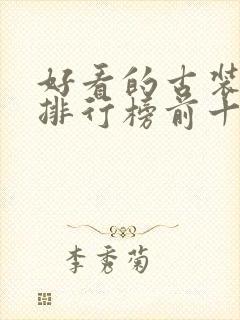 好看的古装
排行榜前十
李秀菊